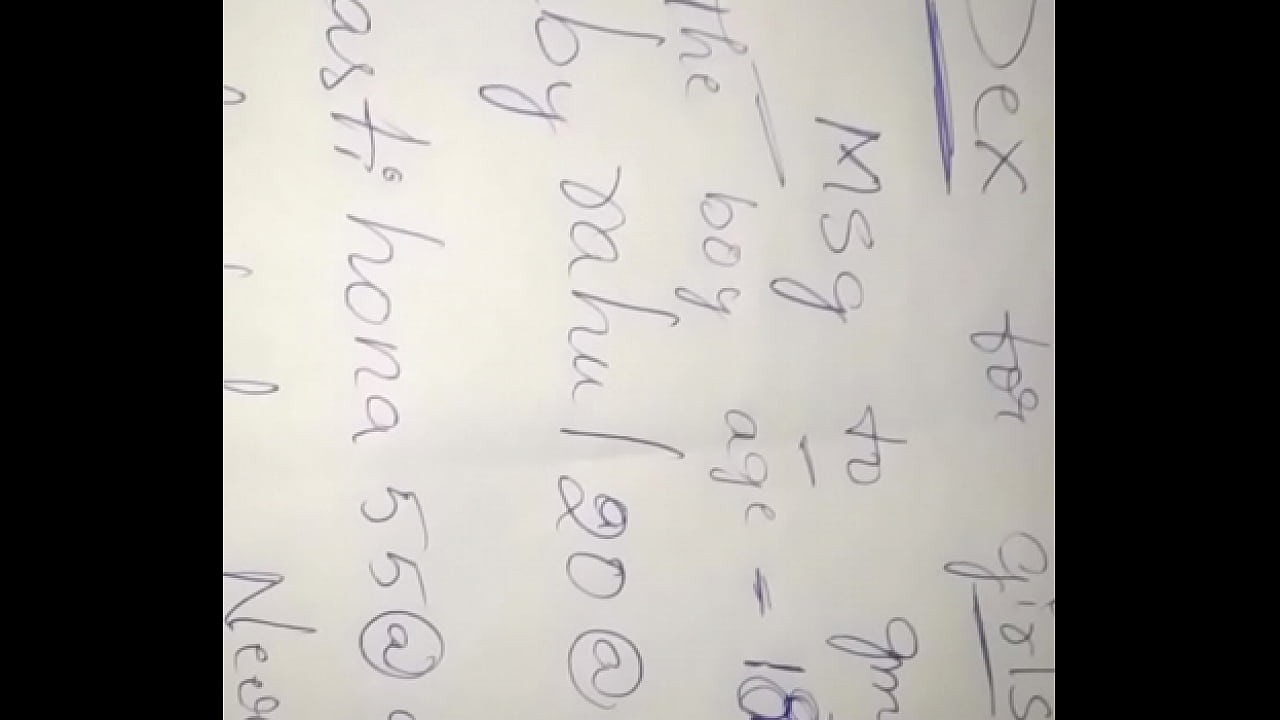 Sex for girls
Msg to gm
the boy age = 18
by rahul 20@
asti hona 55@
Near